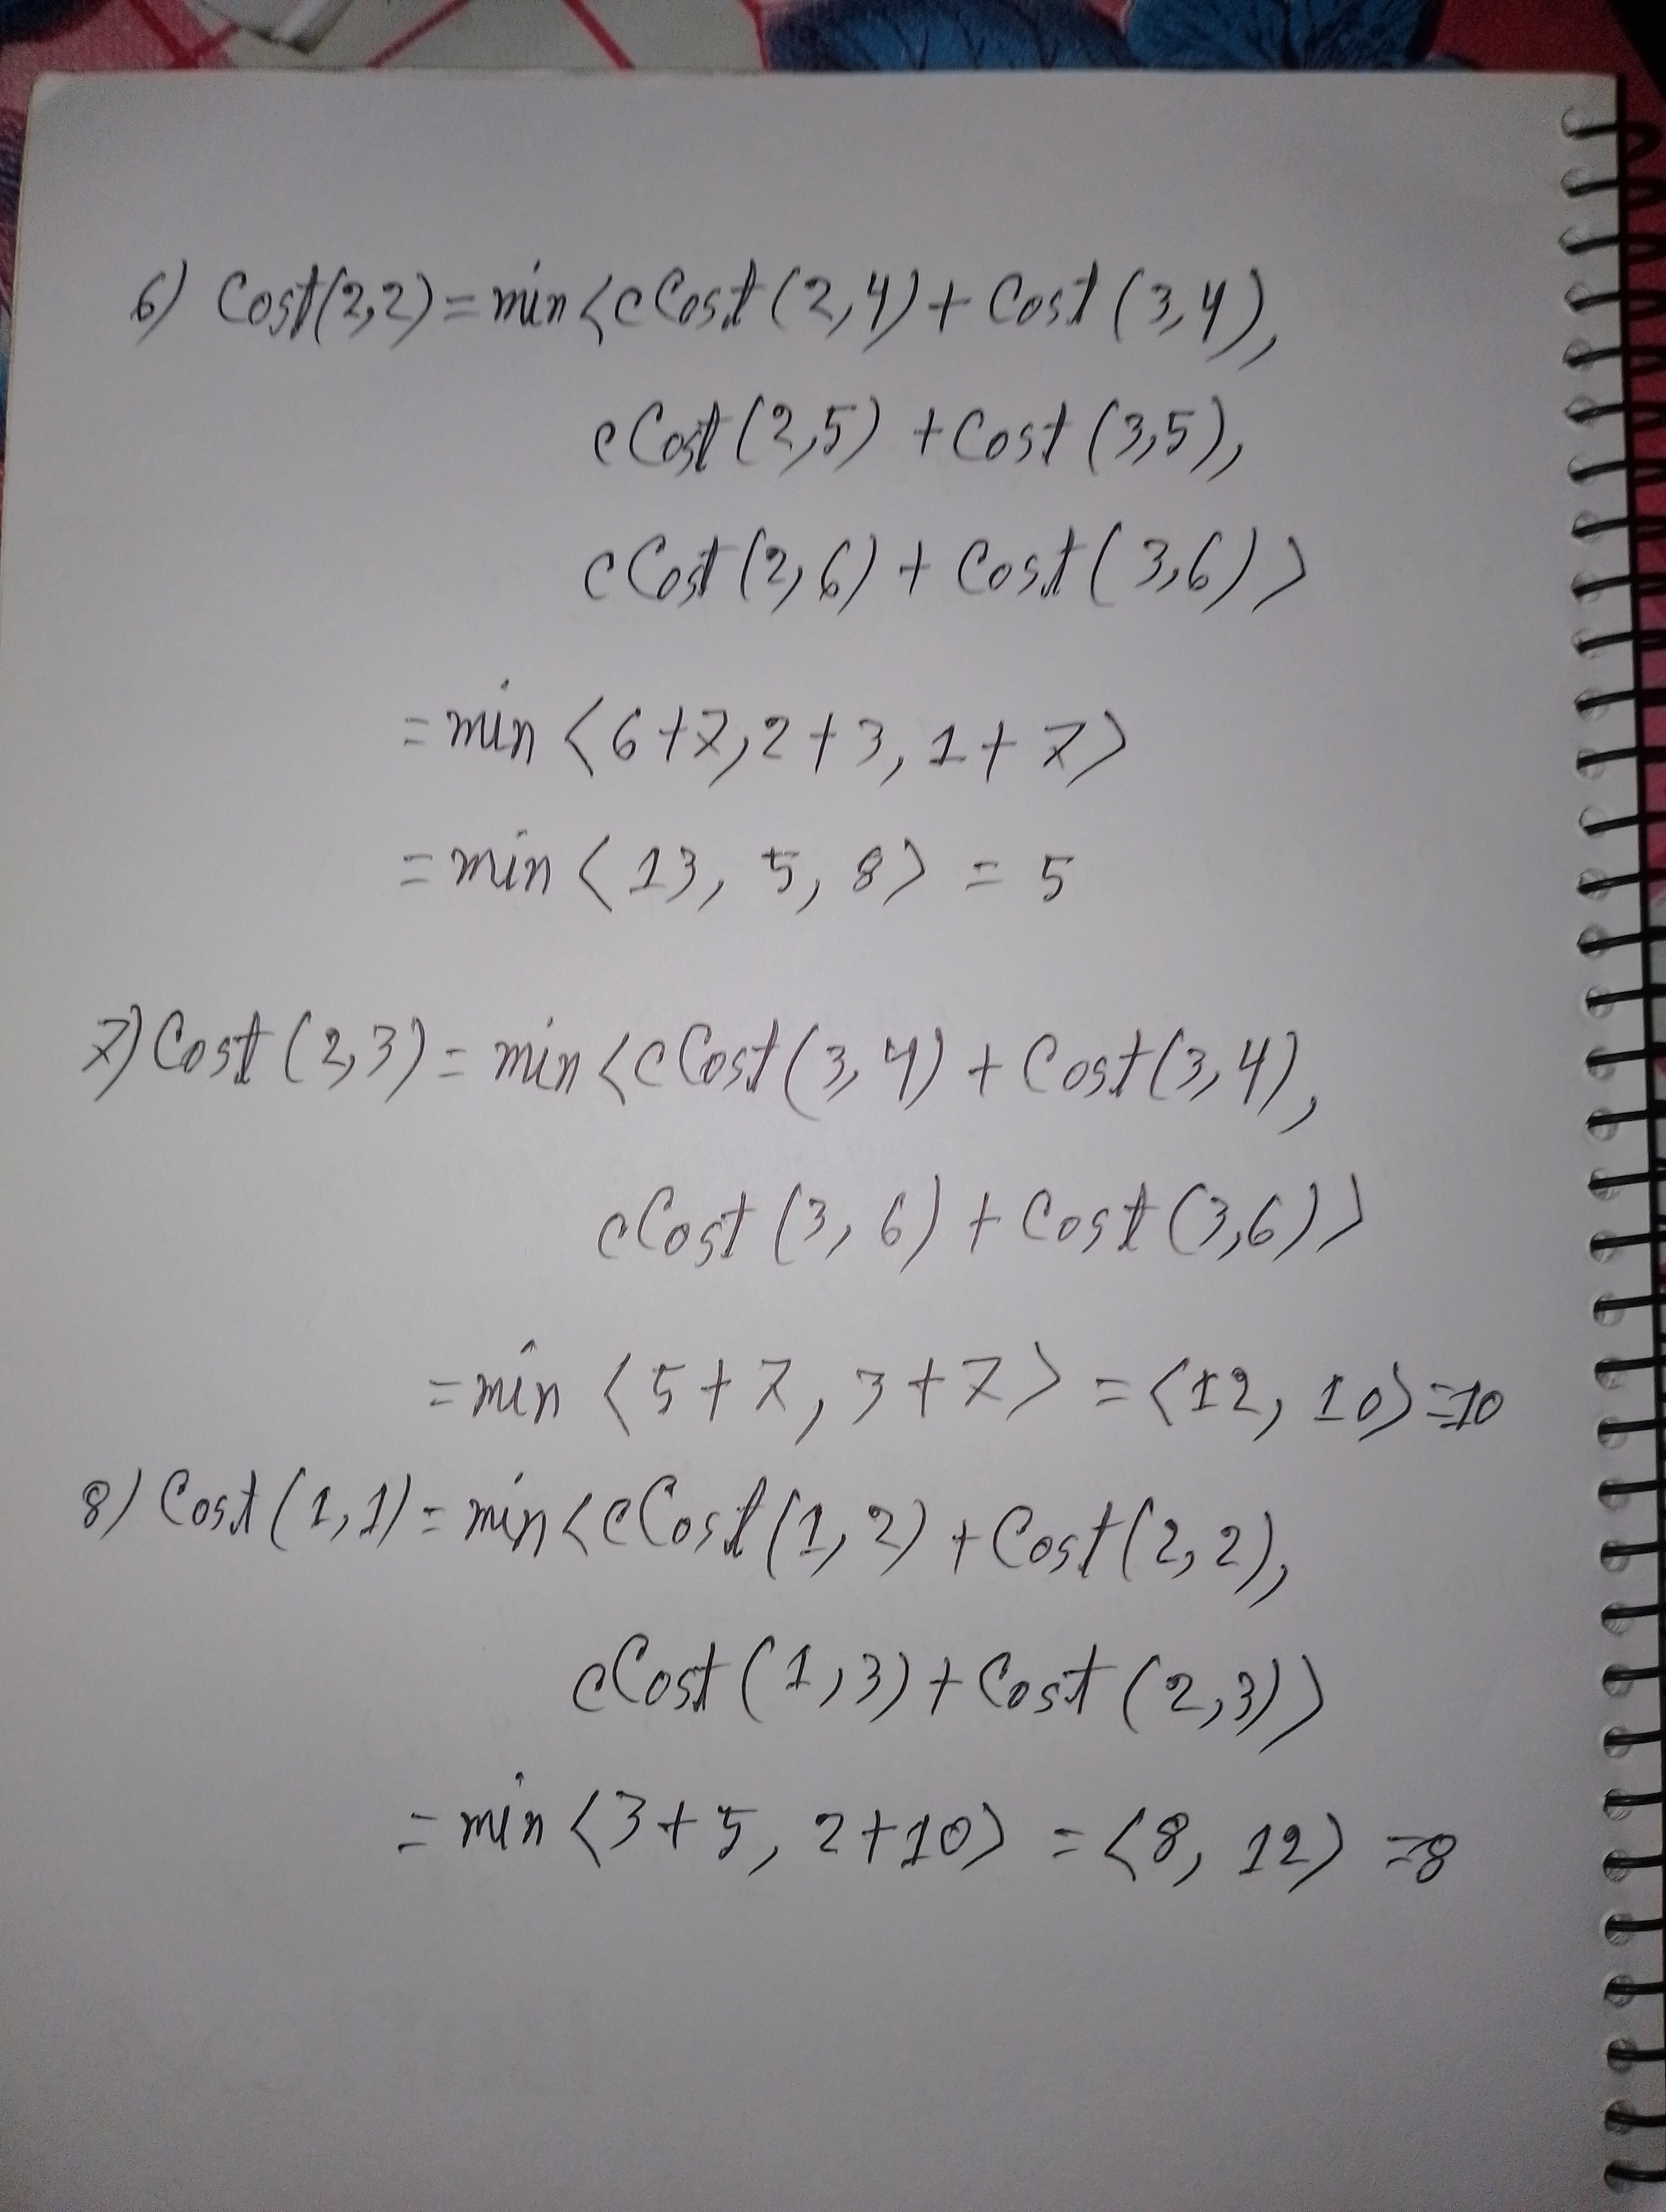 6) Cost(2,2) = min<cCost(2,4) + Cost(3,4),
cCost(2,5) + Cost(3,5),
cCost(2,6) + Cost(3,6)>
= min <6+7, 2+3, 1+7>
= min <13, 5, 8> = 5
7) Cost(2,3) = min<cCost(3,4) + Cost(3,4),
cCost(3,6) + Cost(3,6)>
= min <5+7, 3+7> = <12, 10> = 10
8) Cost(1,1) = min<cCost(1,2) + Cost(2,2),
cCost(1,3) + Cost(2,3)>
= min <3+5, 2+10> = <8, 12> = 8